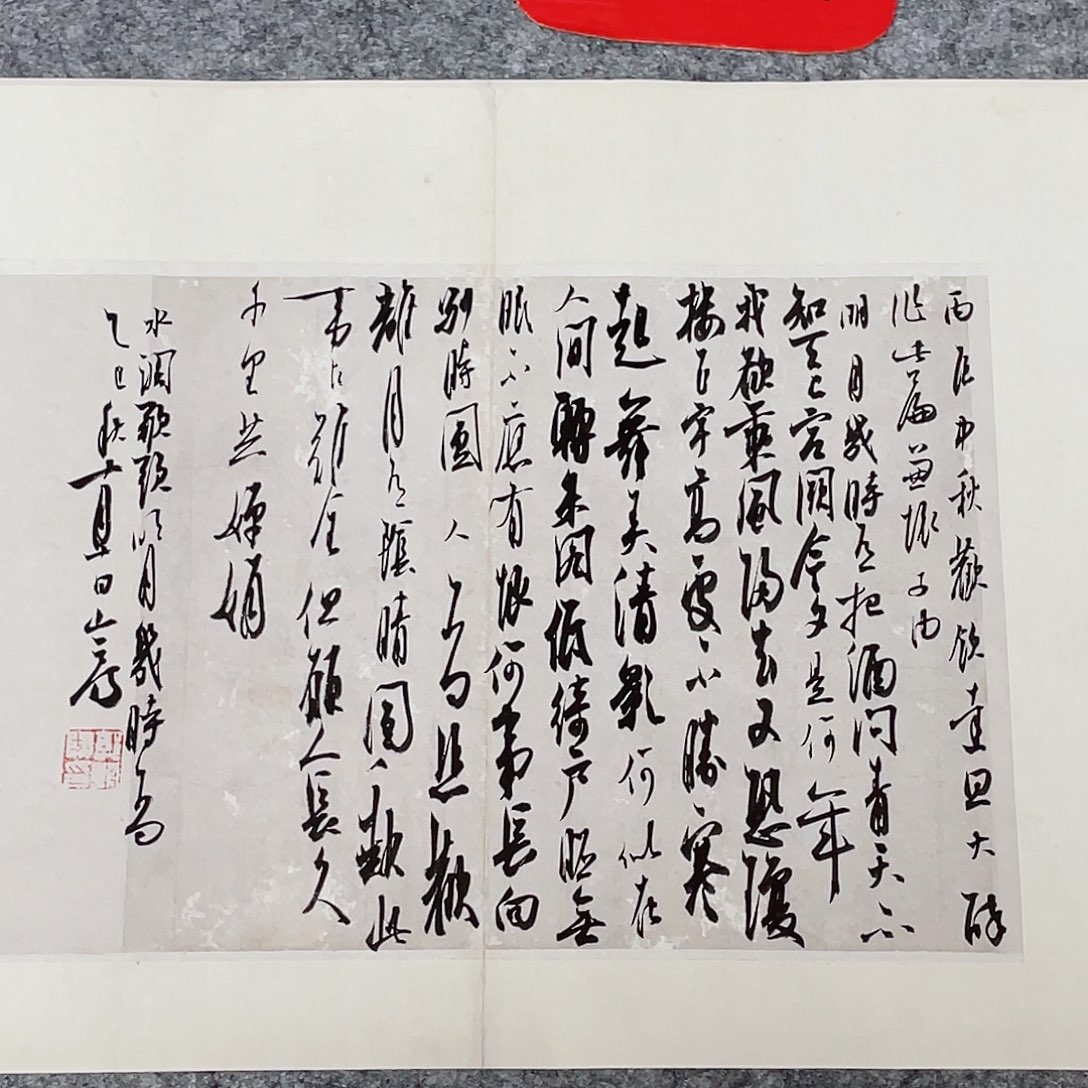 丙辰中秋歡飲達旦大醉
作此篇兼懷子由
明月幾時有把酒問青天不
知天上宮闕今夕是何年
我欲乘風歸去又恐瓊
樓玉宇高處不勝寒
起舞弄清影何似在
人間轉朱閣低綺戶照無
眠不應有恨何事長向
別時圓人有悲歡
離月有陰晴圓缺此
事古難全但願人長久
千里共嬋娟
水調歌頭明月幾時有
乙巳秋月日